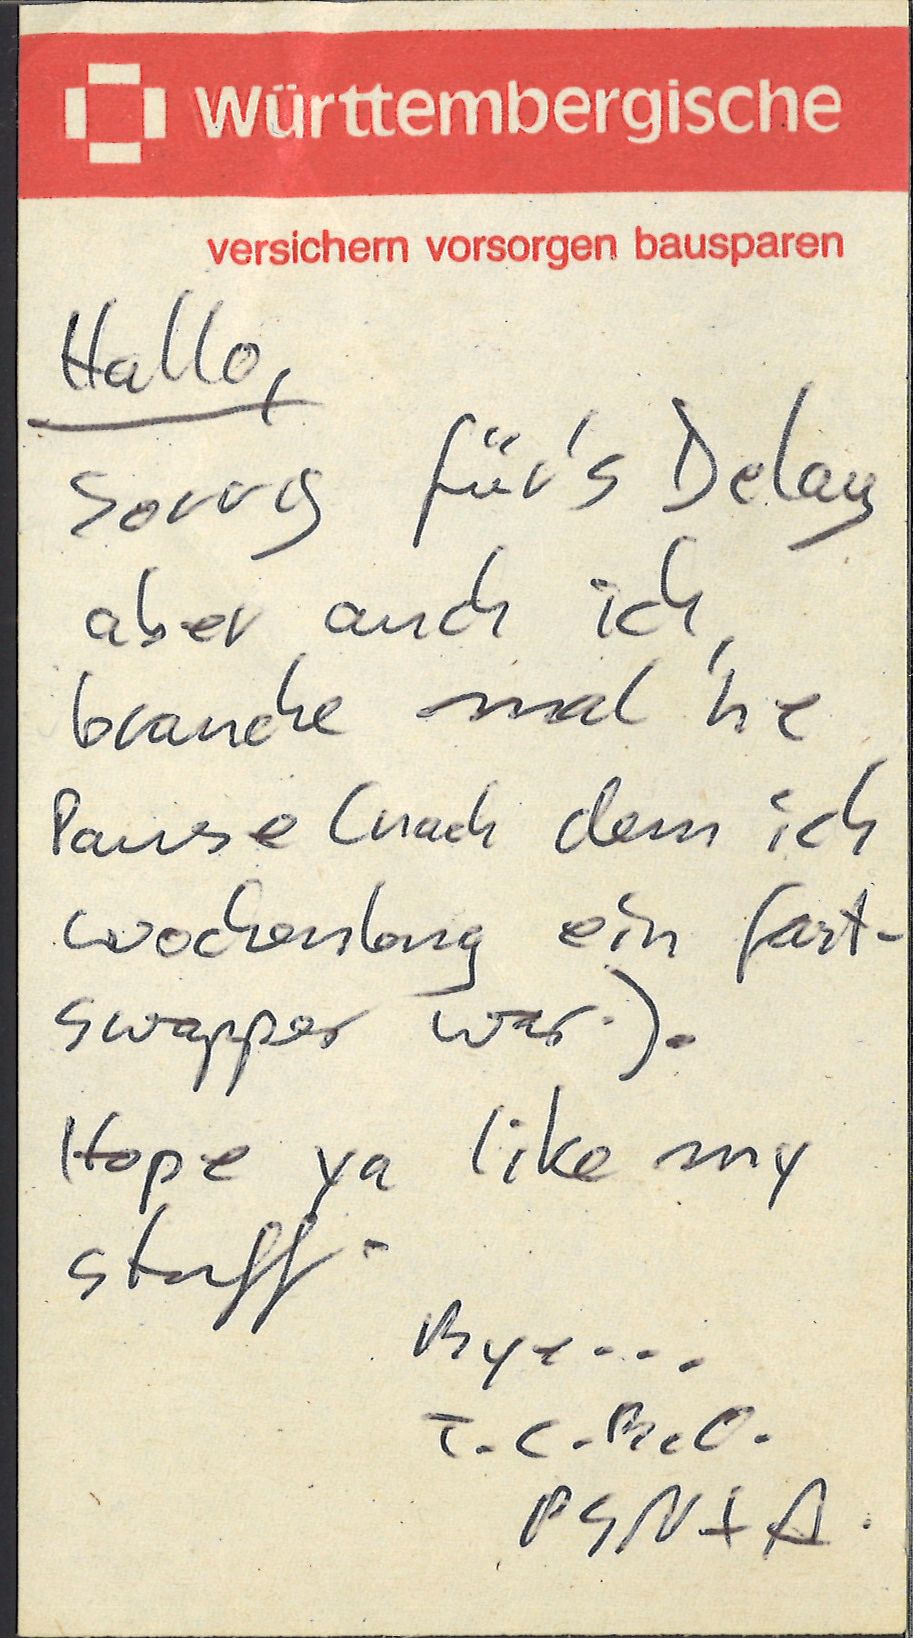 Württembergische
versichern vorsorgen bausparen
Hallo,
sorry für's Delay
aber auch ich
brauche mal 'ne
Pause (nach dem ich
wochenlang ein fast-
swapper war.).
Hope ya like my
stuff.
Bye...
T.C.B.O.